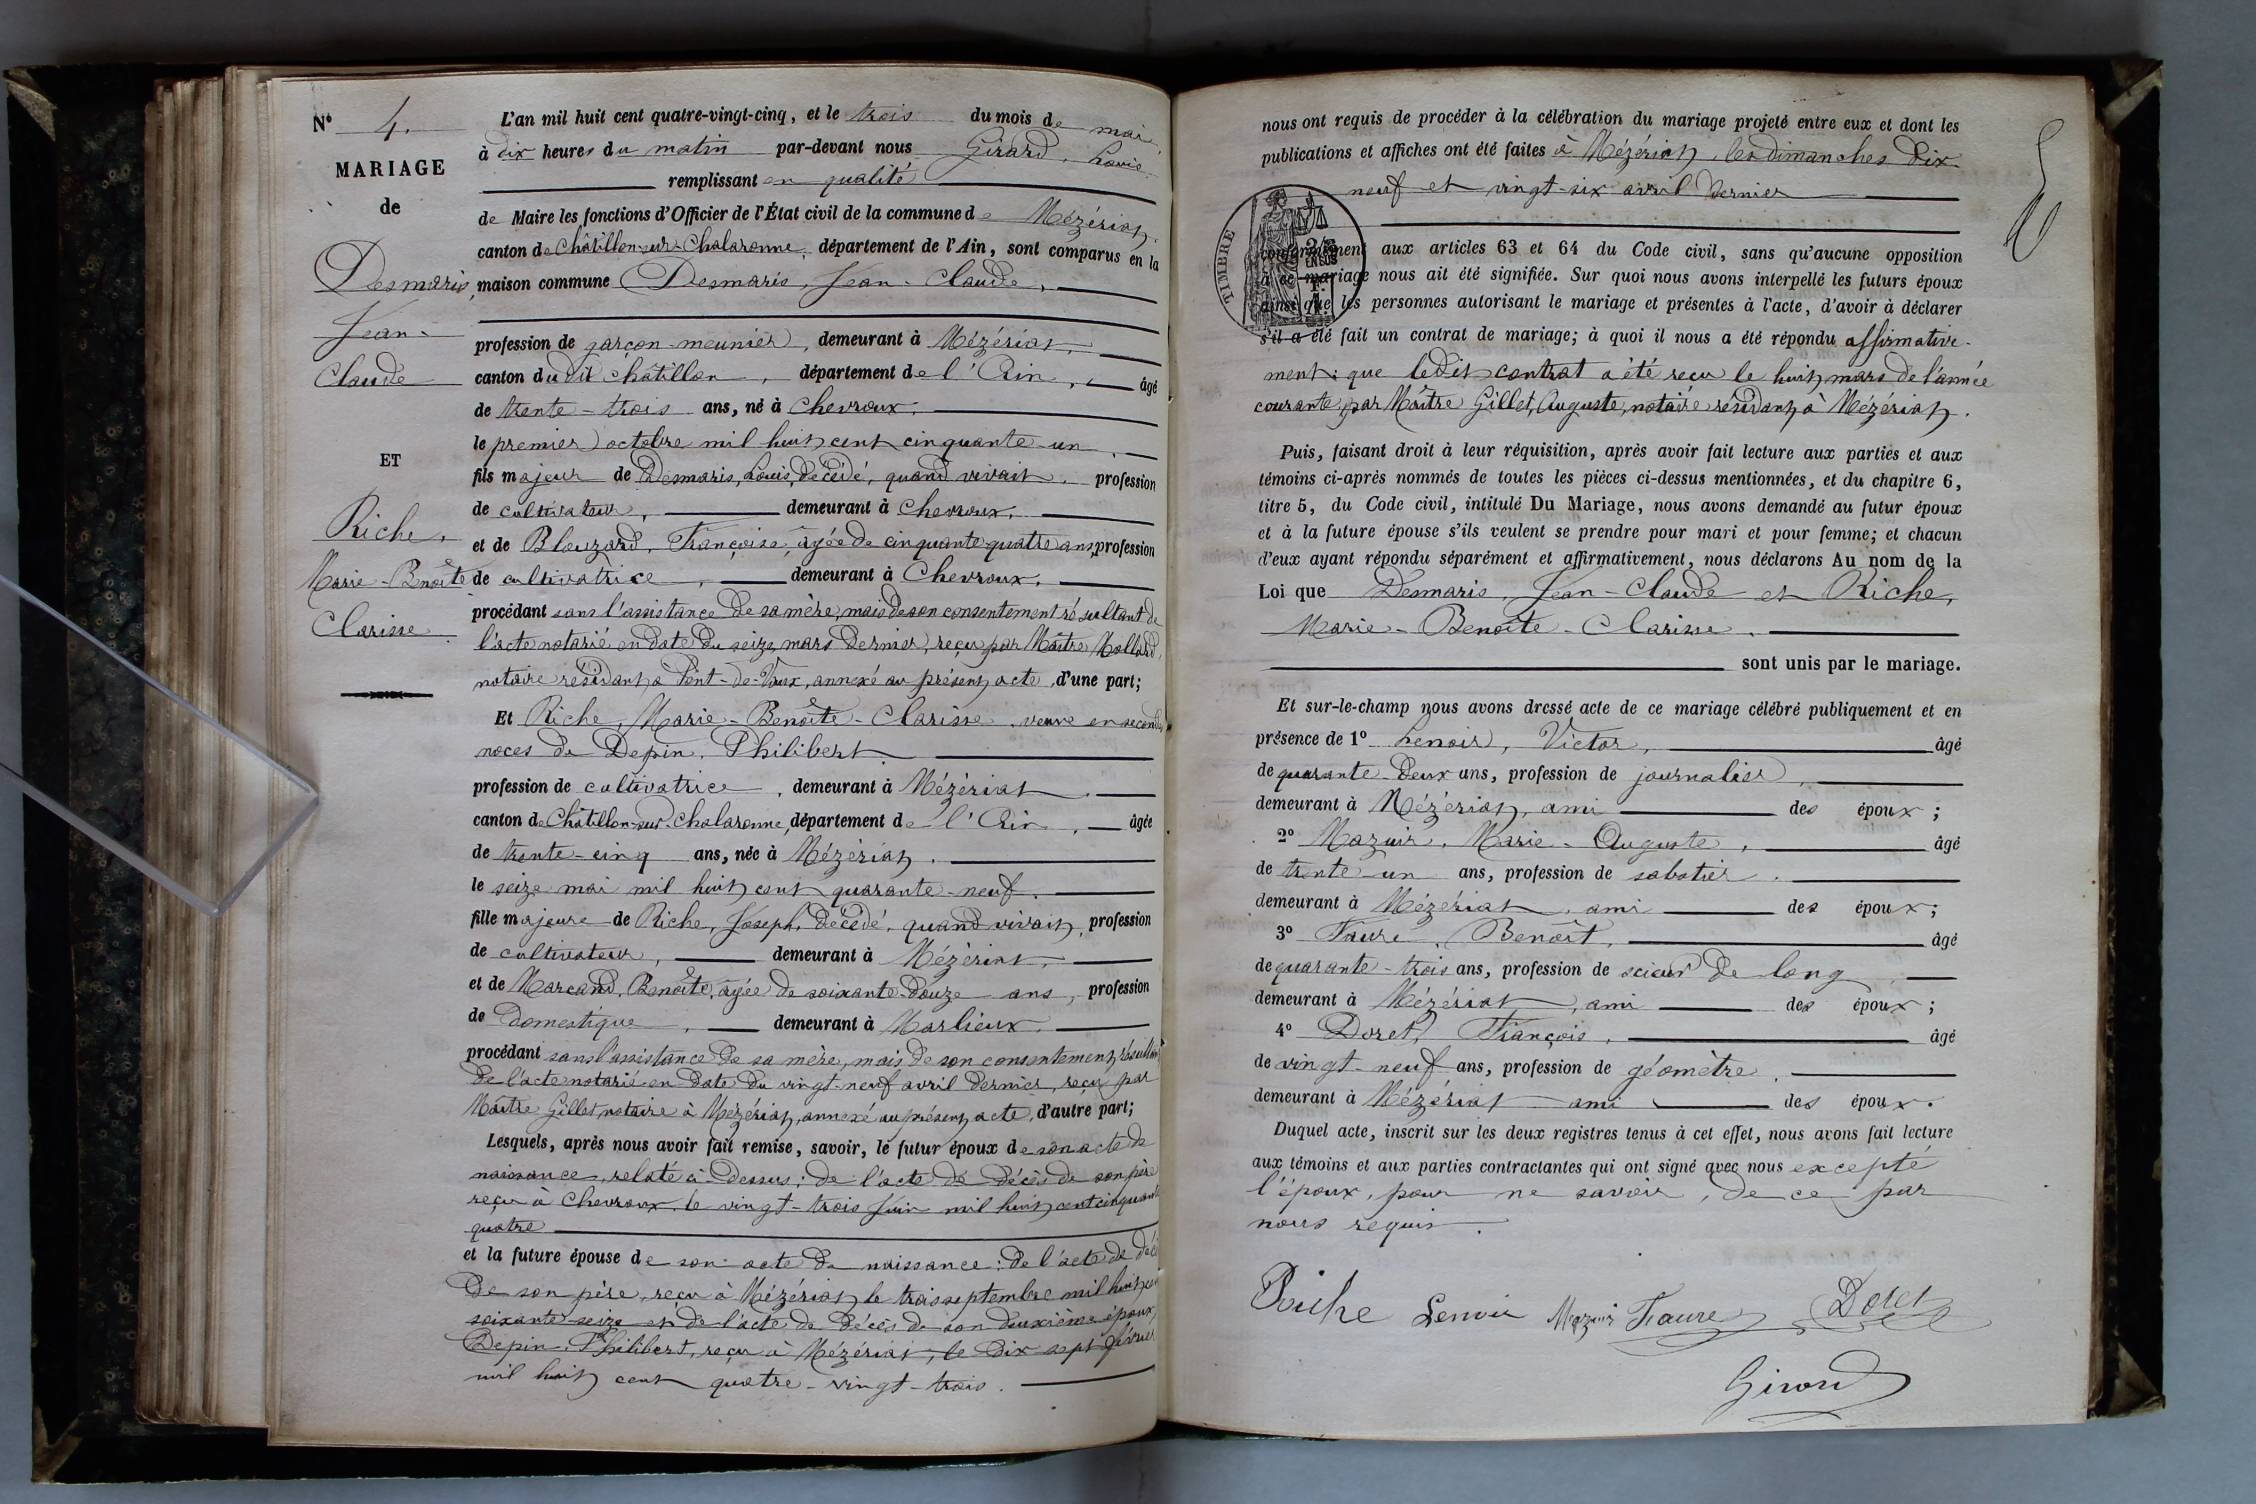 Nº 4.
MARIAGE
de
Desmaris,
Jean-
Claude
ET
Riche,
Marie-Benoîte
Clarisse.
L'an mil huit cent quatre-vingt-cinq, et le trois du mois de mai,
à dix heures du matin par-devant nous Girard, Louis
remplissant en qualité
de Maire les fonctions d'Officier de l'État civil de la commune de Mézériat,
canton de Châtillon-sur-Chalaronne, département de l'Ain, sont comparus en la
maison commune Desmaris, Jean-Claude,
profession de garçon-meunier, demeurant à Mézériat,
canton dudit Châtillon, département de l'Ain, âgé
de trente-trois ans, né à Chevroux,
le premier octobre mil huit cent cinquante-un,
fils majeur de Desmaris, Louis, décédé, quand vivait, profession
de cultivateur, demeurant à Chevroux,
et de Blouzard, Françoise, âgée de cinquante-quatre ans, profession
de cultivatrice, demeurant à Chevroux,
procédant sans l'assistance de sa mère, mais de son consentement résultant de
l'acte notarié en date du seize mars dernier, reçu par Maître Mollard,
notaire résidant à Pont-de-Vaux, annexé au présent acte, d'une part;
Et Riche, Marie-Benoîte-Clarisse, veuve en secondes
noces de Depin, Philibert,
profession de cultivatrice, demeurant à Mézériat,
canton de Châtillon-sur-Chalaronne, département de l'Ain, âgée
de trente-cinq ans, née à Mézériat,
le seize mai mil huit cent quarante-neuf,
fille majeure de Riche, Joseph, décédé, quand vivait, profession
de cultivateur, demeurant à Mézériat,
et de Marcand, Benoîte, âgée de soixante-douze ans, profession
de domestique, demeurant à Marlieux,
procédant sans l'assistance de sa mère, mais de son consentement résultant
de l'acte notarié en date du vingt-neuf avril dernier, reçu par
Maître Gillet, notaire à Mézériat, annexé au présent acte, d'autre part;
Lesquels, après nous avoir fait remise, savoir, le futur époux de son acte de
naissance, relaté ci-dessus; de l'acte de décès de son père
reçu à Chevroux, le vingt-trois juin mil huit cent cinquante
quatre
et la future épouse de son acte de naissance: de l'acte de décès
de son père, reçu à Mézériat le trois septembre mil huit cent
soixante-seize et de l'acte de décès de son deuxième époux,
Depin, Philibert, reçu à Mézériat, le dix-sept février
mil huit cent quatre-vingt-trois.
nous ont requis de procéder à la célébration du mariage projeté entre eux et dont les
publications et affiches ont été faites à Mézériat, les dimanches dix-
neuf et vingt-six avril dernier
TIMBRE
conformément aux articles 63 et 64 du Code civil, sans qu'aucune opposition
à ce mariage nous ait été signifiée. Sur quoi nous avons interpellé les futurs époux
ainsi que les personnes autorisant le mariage et présentes à l'acte, d'avoir à déclarer
s'il a été fait un contrat de mariage; à quoi il nous a été répondu affirmative-
ment; que ledit contrat a été reçu le huit mars de l'année
courante, par Maître Gillet, Auguste, notaire résidant à Mézériat.
Puis, faisant droit à leur réquisition, après avoir fait lecture aux parties et aux
témoins ci-après nommés de toutes les pièces ci-dessus mentionnées, et du chapitre 6,
titre 5, du Code civil, intitulé Du Mariage, nous avons demandé au futur époux
et à la future épouse s'ils veulent se prendre pour mari et pour femme; et chacun
d'eux ayant répondu séparément et affirmativement, nous déclarons Au nom de la
Loi que Desmaris, Jean-Claude et Riche,
Marie-Benoîte-Clarisse,
sont unis par le mariage.
Et sur-le-champ nous avons dressé acte de ce mariage célébré publiquement et en
présence de 1º Lenoir, Victor, âgé
de quarante-deux ans, profession de journalier,
demeurant à Mézériat, ami des époux;
2º Mazuir, Marie-Auguste, âgé
de trente un ans, profession de sabotier,
demeurant à Mézériat, ami des époux;
3º Faure, Benoît, âgé
de quarante-trois ans, profession de scieur de long,
demeurant à Mézériat, ami des époux;
4º Doret, François, âgé
de vingt-neuf ans, profession de géomètre,
demeurant à Mézériat ami des époux.
Duquel acte, inscrit sur les deux registres tenus à cet effet, nous avons fait lecture
aux témoins et aux parties contractantes qui ont signé avec nous excepté
l'époux, pour ne savoir, de ce par
nous requis.
Riche Lenoir Mazuir Faure Doret
Girard